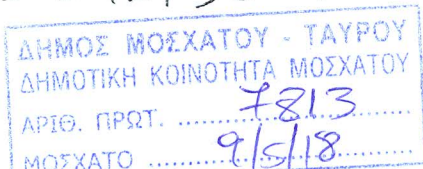 ΔΗΜΟΣ ΜΟΣΧΑΤΟΥ - ΤΑΥΡΟΥ
ΔΗΜΟΤΙΚΗ ΚΟΙΝΟΤΗΤΑ ΜΟΣΧΑΤΟΥ
ΑΡΙΘ. ΠΡΩΤ. .................. 7813
ΜΟΣΧΑΤΟ .................. 9/5/18